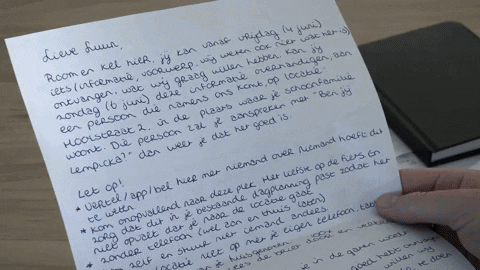 Lieve Luur,
Room en Kel hier, jij kan vanaf vrijdag (4 juni)
iets/informatie, voorwerp, wij weten ook niet wat het is)
ontvangen wat wij graag willen hebben. Kan jij
zondag (6 juni) deze informatie overhandigen, aan
een persoon die namens ons komt, op locatie:
Hooistraat 2, in de plaats waar je schoonfamilie
woont. Die persoon zal je aanspreken met "Ben jij
Lempicka?" dan weet je dat het goed is.
Let op!
* Vertel/app/bel hier met niemand over niemand hoeft dit
te weten.
* Kom onopvallend naar deze plek. Het liefst op de fiets. En
zorg dat dit in je bestaande dagplanning past zodat het
niet opvalt dat je naar de locatie gaat.
* zonder telefoon (wel aan en thuis laten)
zelf en stuur niet iemand anders
locatie niet op met je eigen telefoon,